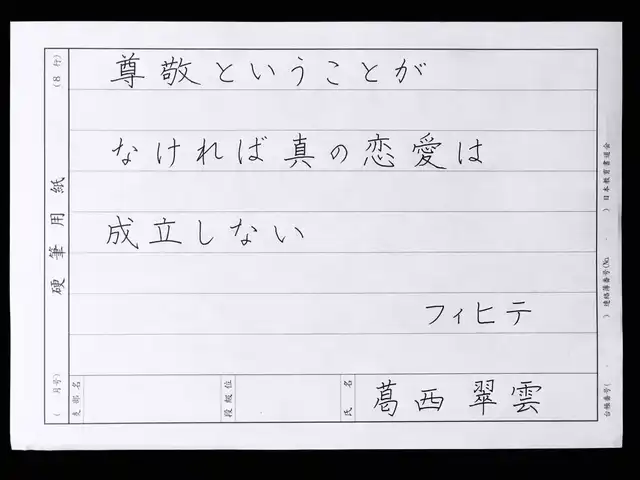 尊敬ということが
なければ真の恋愛は
成立しない
フィヒテ
葛西 翠雲
硬筆用紙
(8 行)
( 月号)
支部名
段級位
氏名
日本教育書道会
連絡簿番号(No. . )
台帳番号( . )